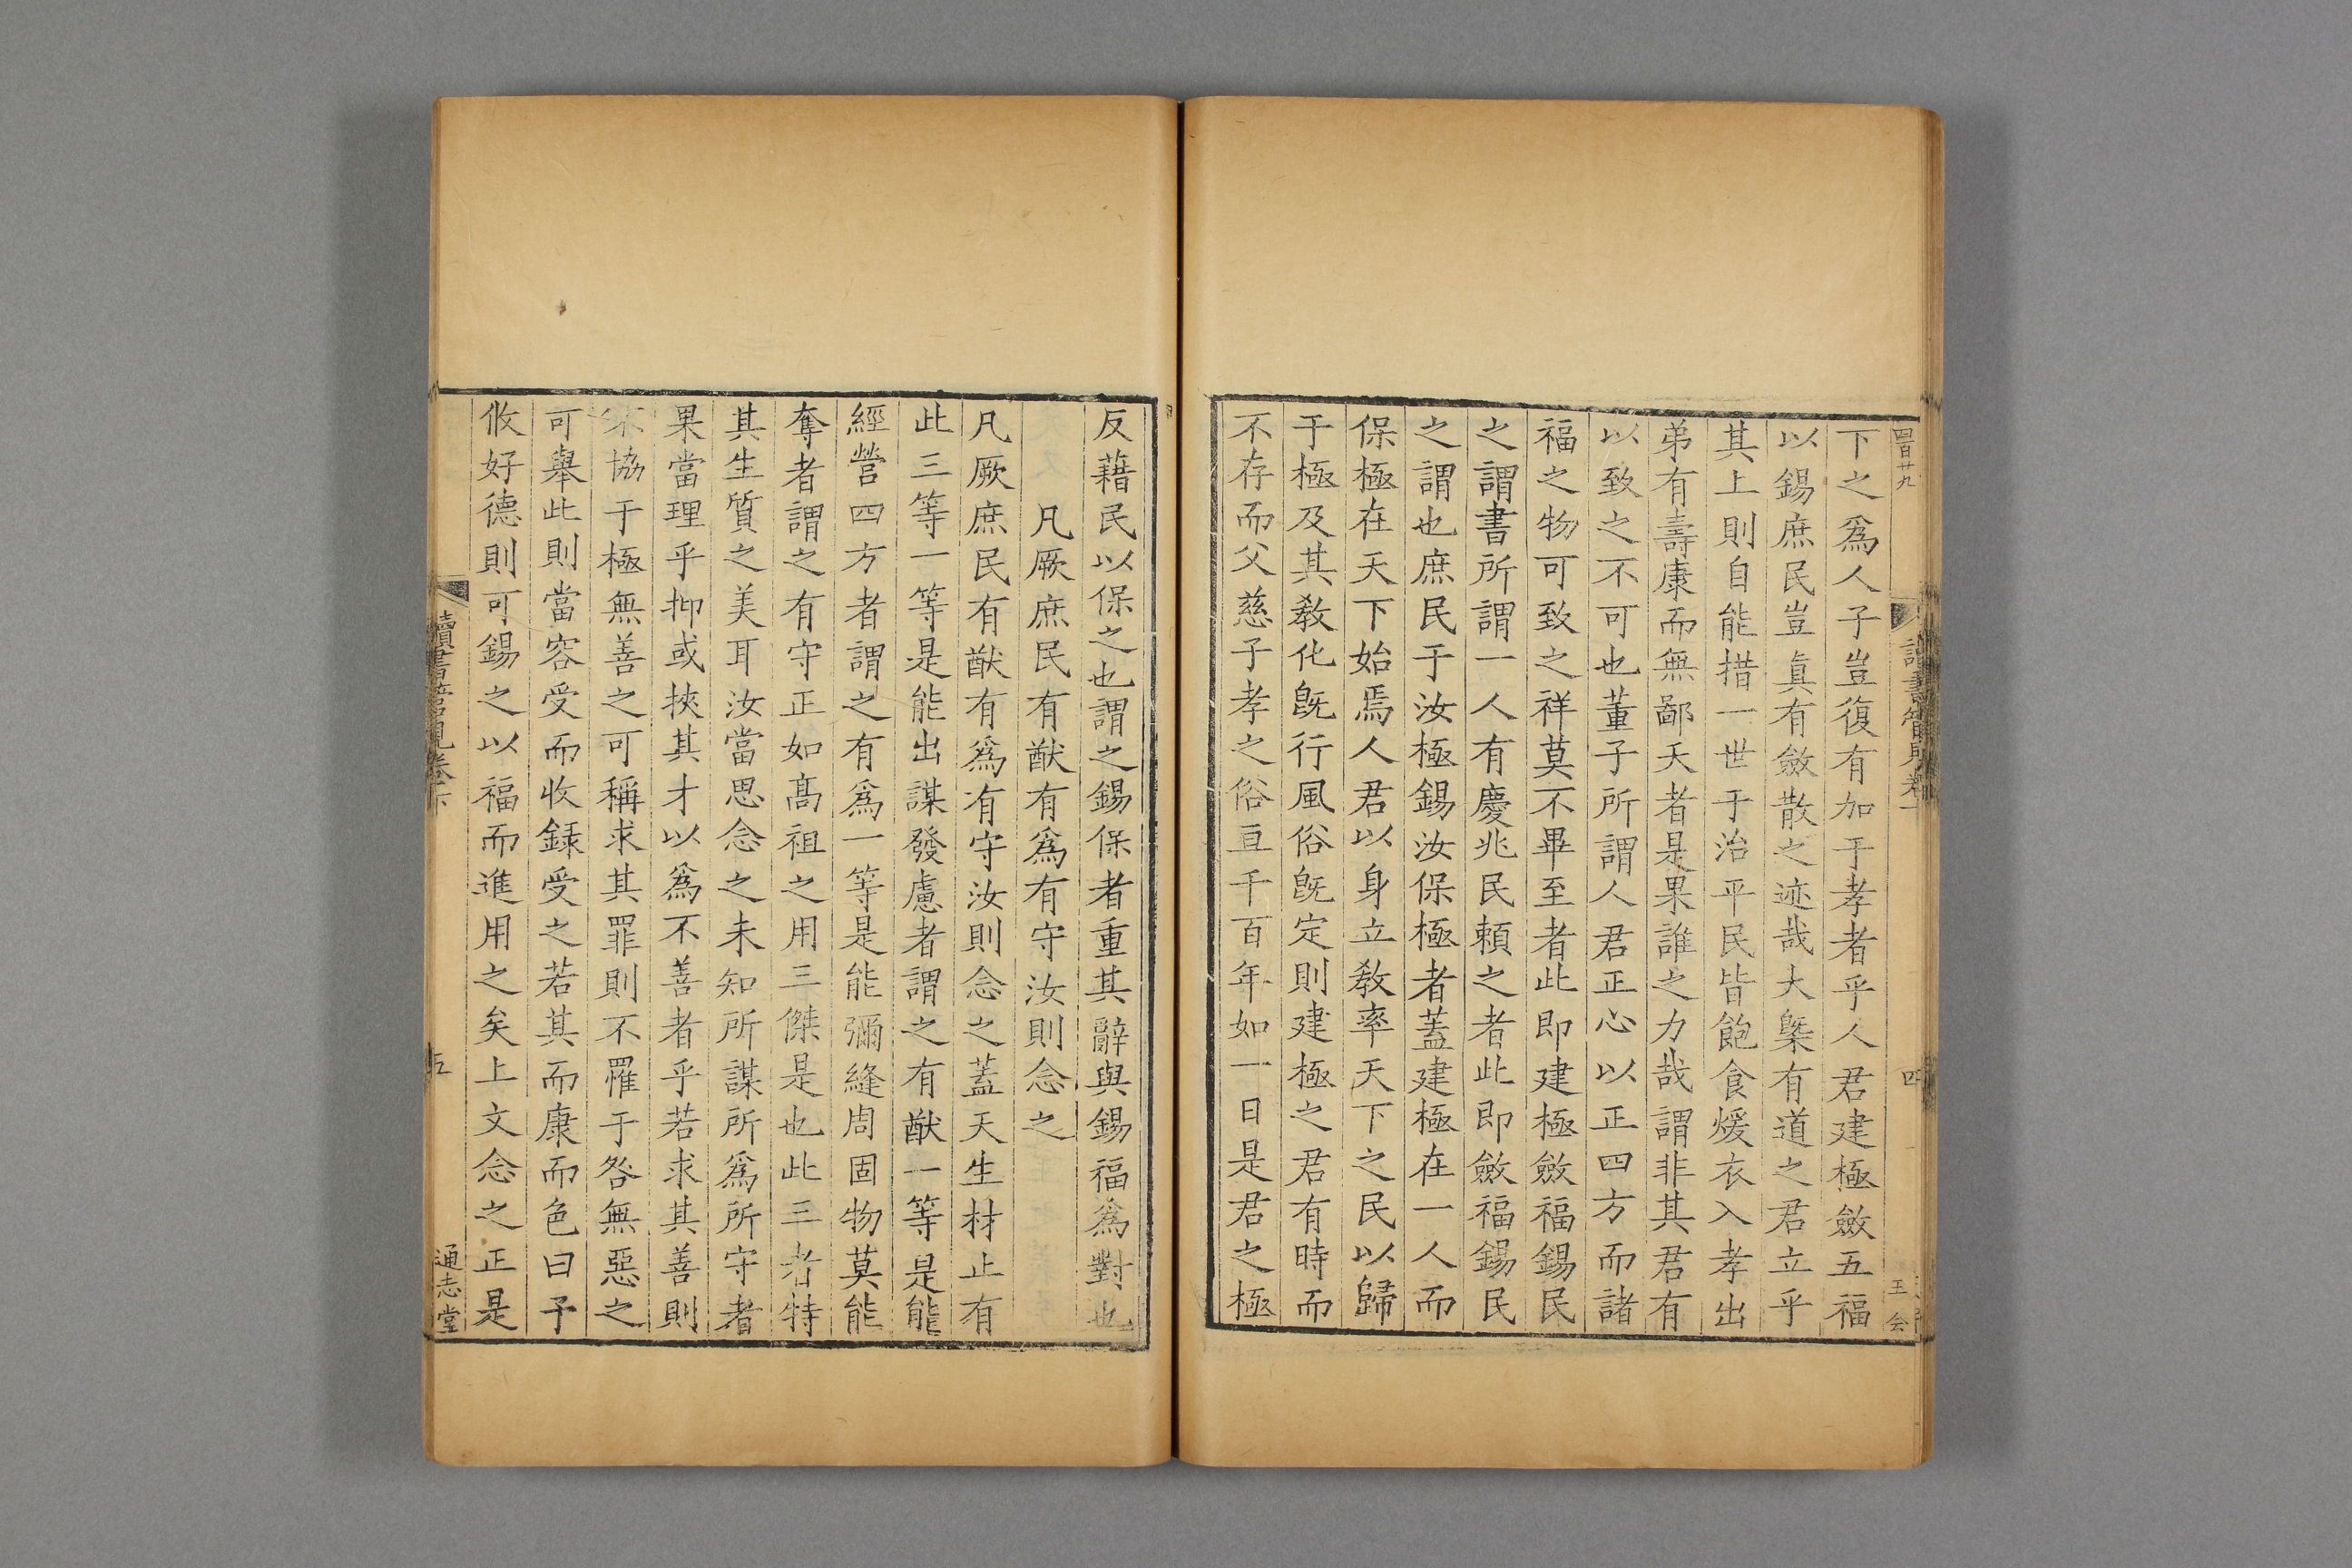 四百廿九
讀書管見卷下
四
王
公
下之爲人子豈復有加于孝者乎人君建極斂五福
以錫庶民豈眞有斂散之迹哉大槩有道之君立乎
其上則自能措一世于治平民皆飽食煖衣入孝出
弟有壽康而無鄙夭者是果誰之力哉謂非其君有
以致之不可也董子所謂人君正心以正四方而諸
福之物可致之祥莫不畢至者此即建極斂福錫民
之謂書所謂一人有慶兆民賴之者此即斂福錫民
之謂也庶民于汝極錫汝保極者蓋建極在一人而
保極在天下始焉人君以身立敎率天下之民以歸
于極及其敎化旣行風俗旣定則建極之君有時而
不存而父慈子孝之俗亘千百年如一日是君之極
反藉民以保之也謂之錫保者重其辭與錫福爲對也
凡厥庶民有猷有爲有守汝則念之
凡厥庶民有猷有爲有守汝則念之蓋天生材止有
此三等一等是能出謀發慮者謂之有猷一等是能
經營四方者謂之有爲一等是能彌縫周固物莫能
奪者謂之有守正如高祖之用三傑是也此三者特
其生質之美耳汝當思念之未知所謀所爲所守者
果當理乎抑或挾其才以爲不善者乎若求其善則
不協于極無善之可稱求其罪則不罹于咎無惡之
可舉此則當容受而收録受之若其而康而色曰予
攸好德則可錫之以福而進用之矣上文念之正是
讀書管見卷下
五
通志堂